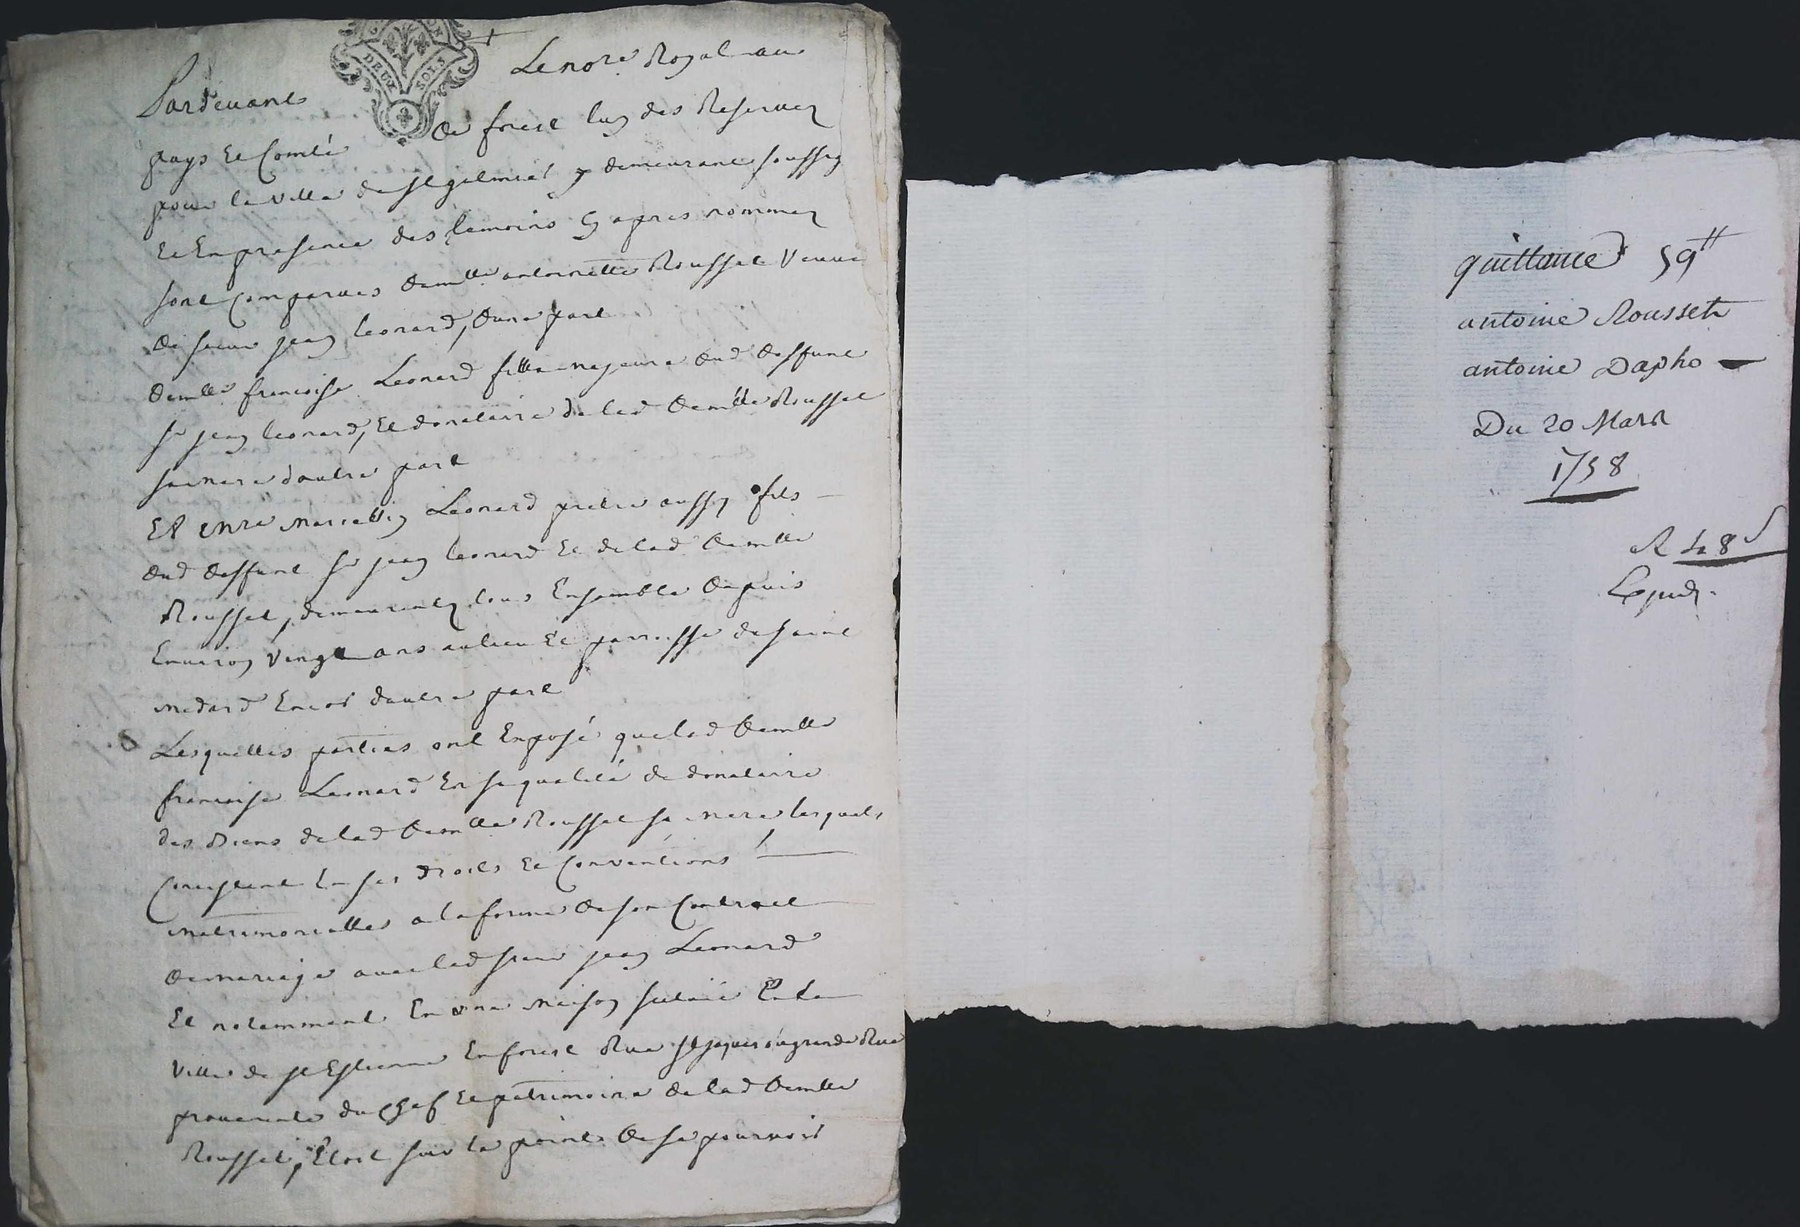 DEUX SOLS
Pardevant Le nore Royal au
pays et Comté de forest luy des Reservez
pour la ville de st galmier y demeurant soussig
et En presence des temoins Cy apres nommez
sont Comparues demlle antoinette Rousset Veuve
de sieur jean leonard, d'une part
demlle francoise Leonard fille majeure dud deffunt
sr jean leonard, et donataire de lad demlle Rousset
sa mere d'autre part
Et mre Marcellin Leonard pretre aussy fils
dud deffunt sr jean leonard et de lad demlle
Rousset, demeurantz tous Ensemble depuis
Environ vingt ans au lieu et parroisse de saint
medard Encor d'autre part
Lesquelles parties ont Exposé que lad demlle
francoise Leonard En sa qualité de donataire
des Biens de lad demlle Rousset sa mere lesquels
Consistent En ses droits et Conventions
matrimonialles a la forme de son Contract
de mariage avec led sieur jean Leonard
Et notemment En une maison scituée En la
ville de st Estienne En forest Rue st jaques ou grande Rue
provenante du chef et patrimoine de lad demlle
Rousset, Etoit sur le point de se pourvoir
quittance 59tt
antoine Rousset
antoine Dapho
Du 20 Mars
1758
R 48 s